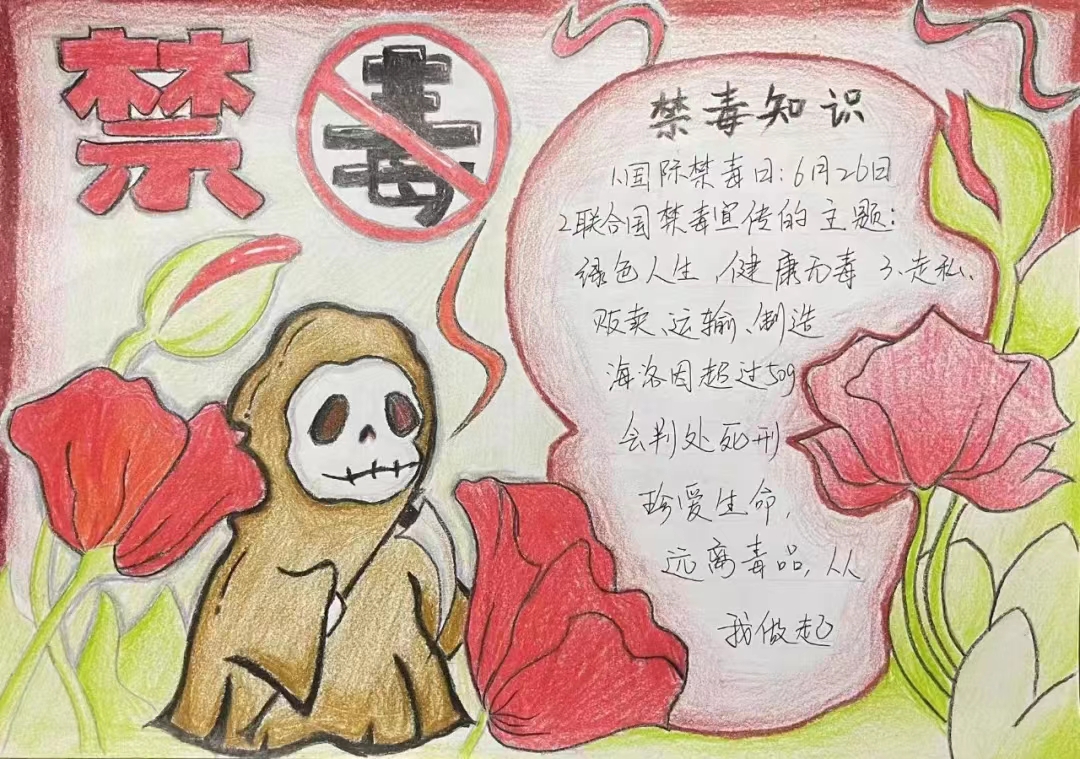 禁毒
禁毒知识
1.国际禁毒日:6月26日
2.联合国禁毒宣传的主题:
绿色人生,健康无毒 3.走私、
贩卖、运输、制造
海洛因超过50g
会判处死刑
珍爱生命,
远离毒品,从
我做起